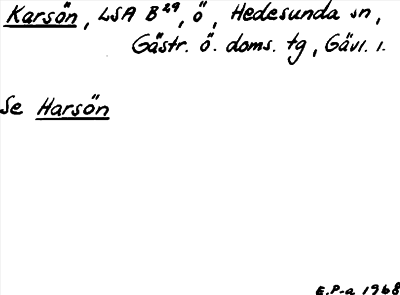 Karsön, LSA B29, ö, Hedesunda sn,
Gästr. ö. doms. tg, Gävl. l.
Se Harsön
E.P-a 1968